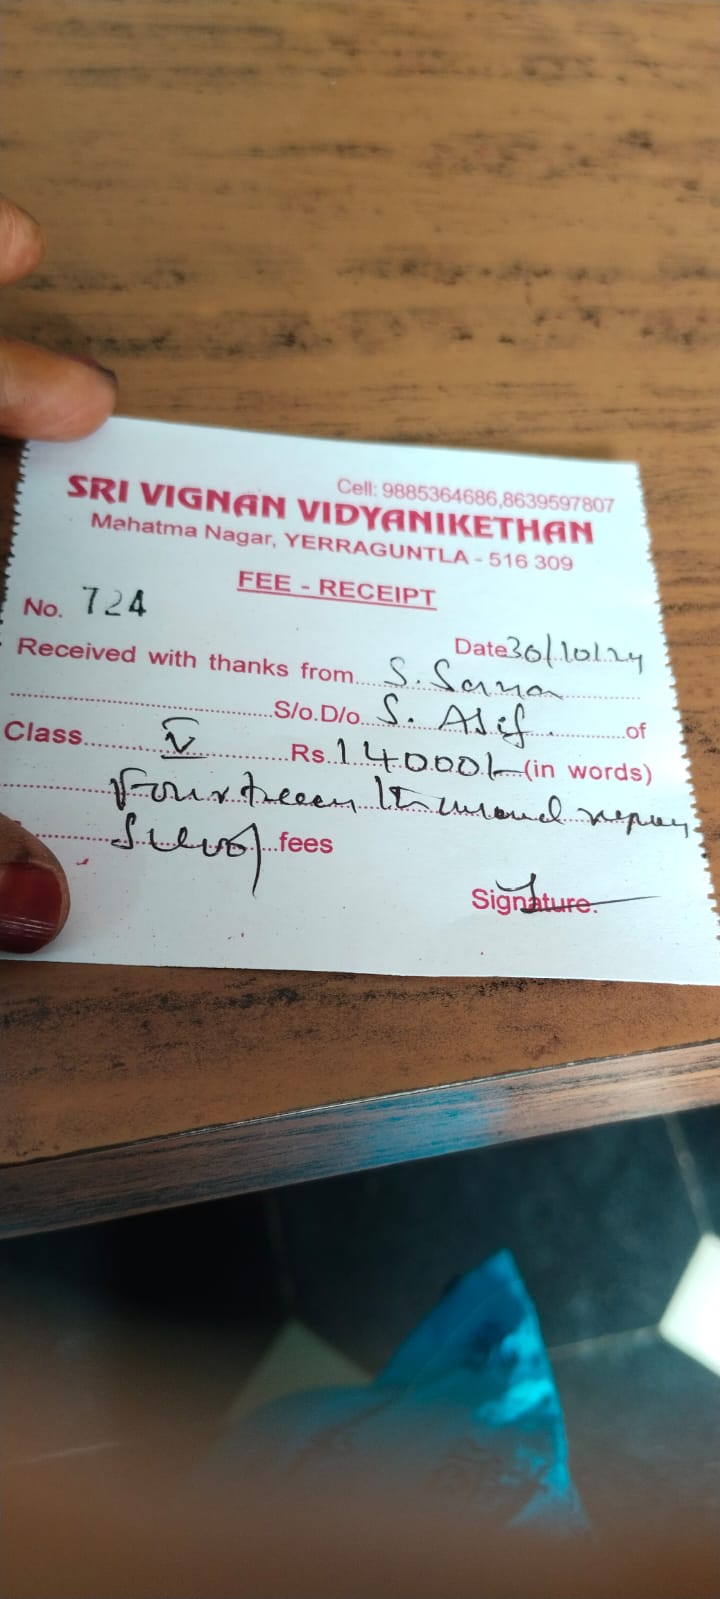 Cell: 9885364686,8639597807
SRI VIGNAN VIDYANIKETHAN
Mahatma Nagar, YERRAGUNTLA - 516 309
FEE - RECEIPT
No. 724
Date 30/10/24
Received with thanks from S.
S/o.D/o. S. Asif of
Class V Rs. 14000/- (in words)
Fourteen
fees
Signature.